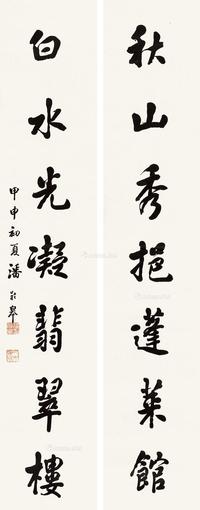 秋山秀挹蓬莱館
白水光凝翡翠樓
甲申初夏潘齡皋